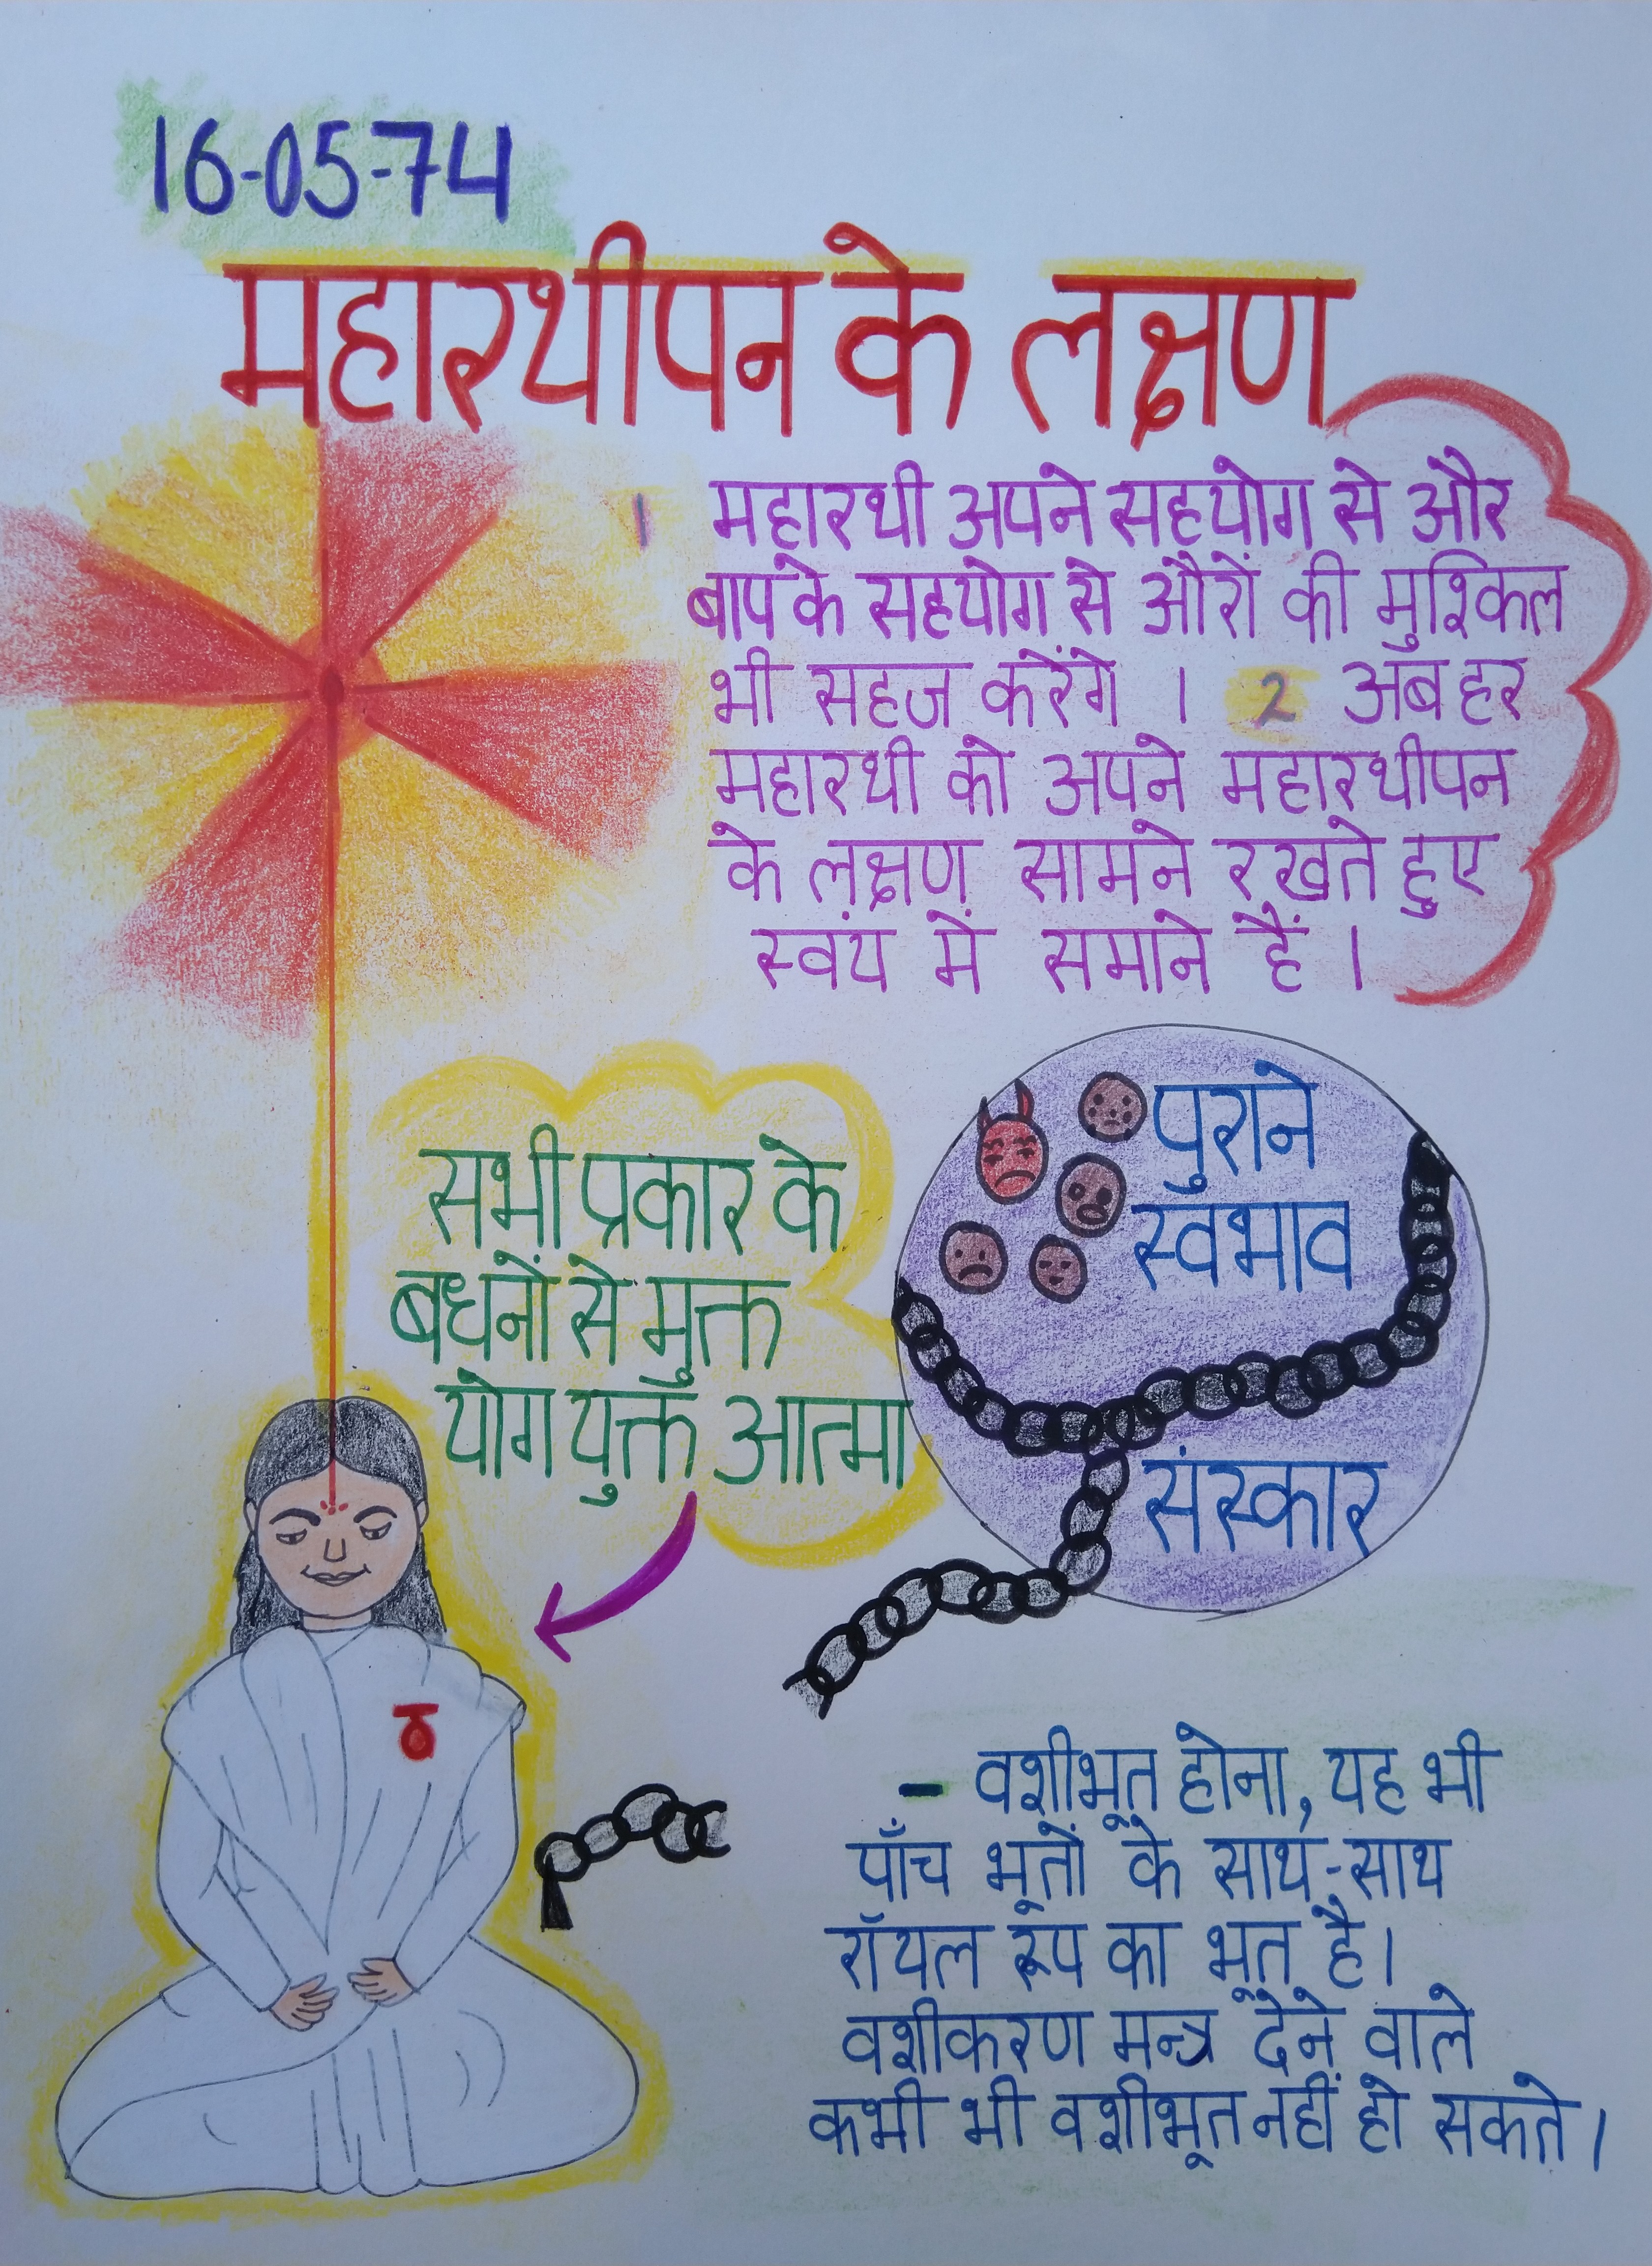 16-05-74
महारथीपन के लक्षण
1 महारथी अपने सहयोग से और
बाप के सहयोग से औरों की मुश्किल
भी सहज करेंगे । 2 अब हर
महारथी को अपने महारथीपन
के लक्षण सामने रखते हुए
स्वंय में समाने हैं ।
सभी प्रकार के
बधनों से मुक्त
योग युक्त आत्मा
पुराने
स्वभाव
संस्कार
- वशीभूत होना, यह भी
पाँच भूतों के साथ-साथ
रॉयल रूप का भूत है।
वशीकरण मन्त्र देने वाले
कभी भी वशीभूत नहीं हो सकते।